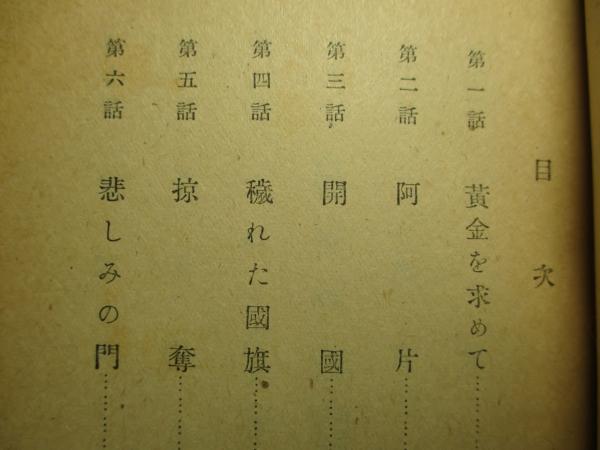 目次
第一話 黃金を求めて……
第二話 阿片……
第三話 開國……
第四話 穢れた國旗……
第五話 掠奪……
第六話 悲しみの門……